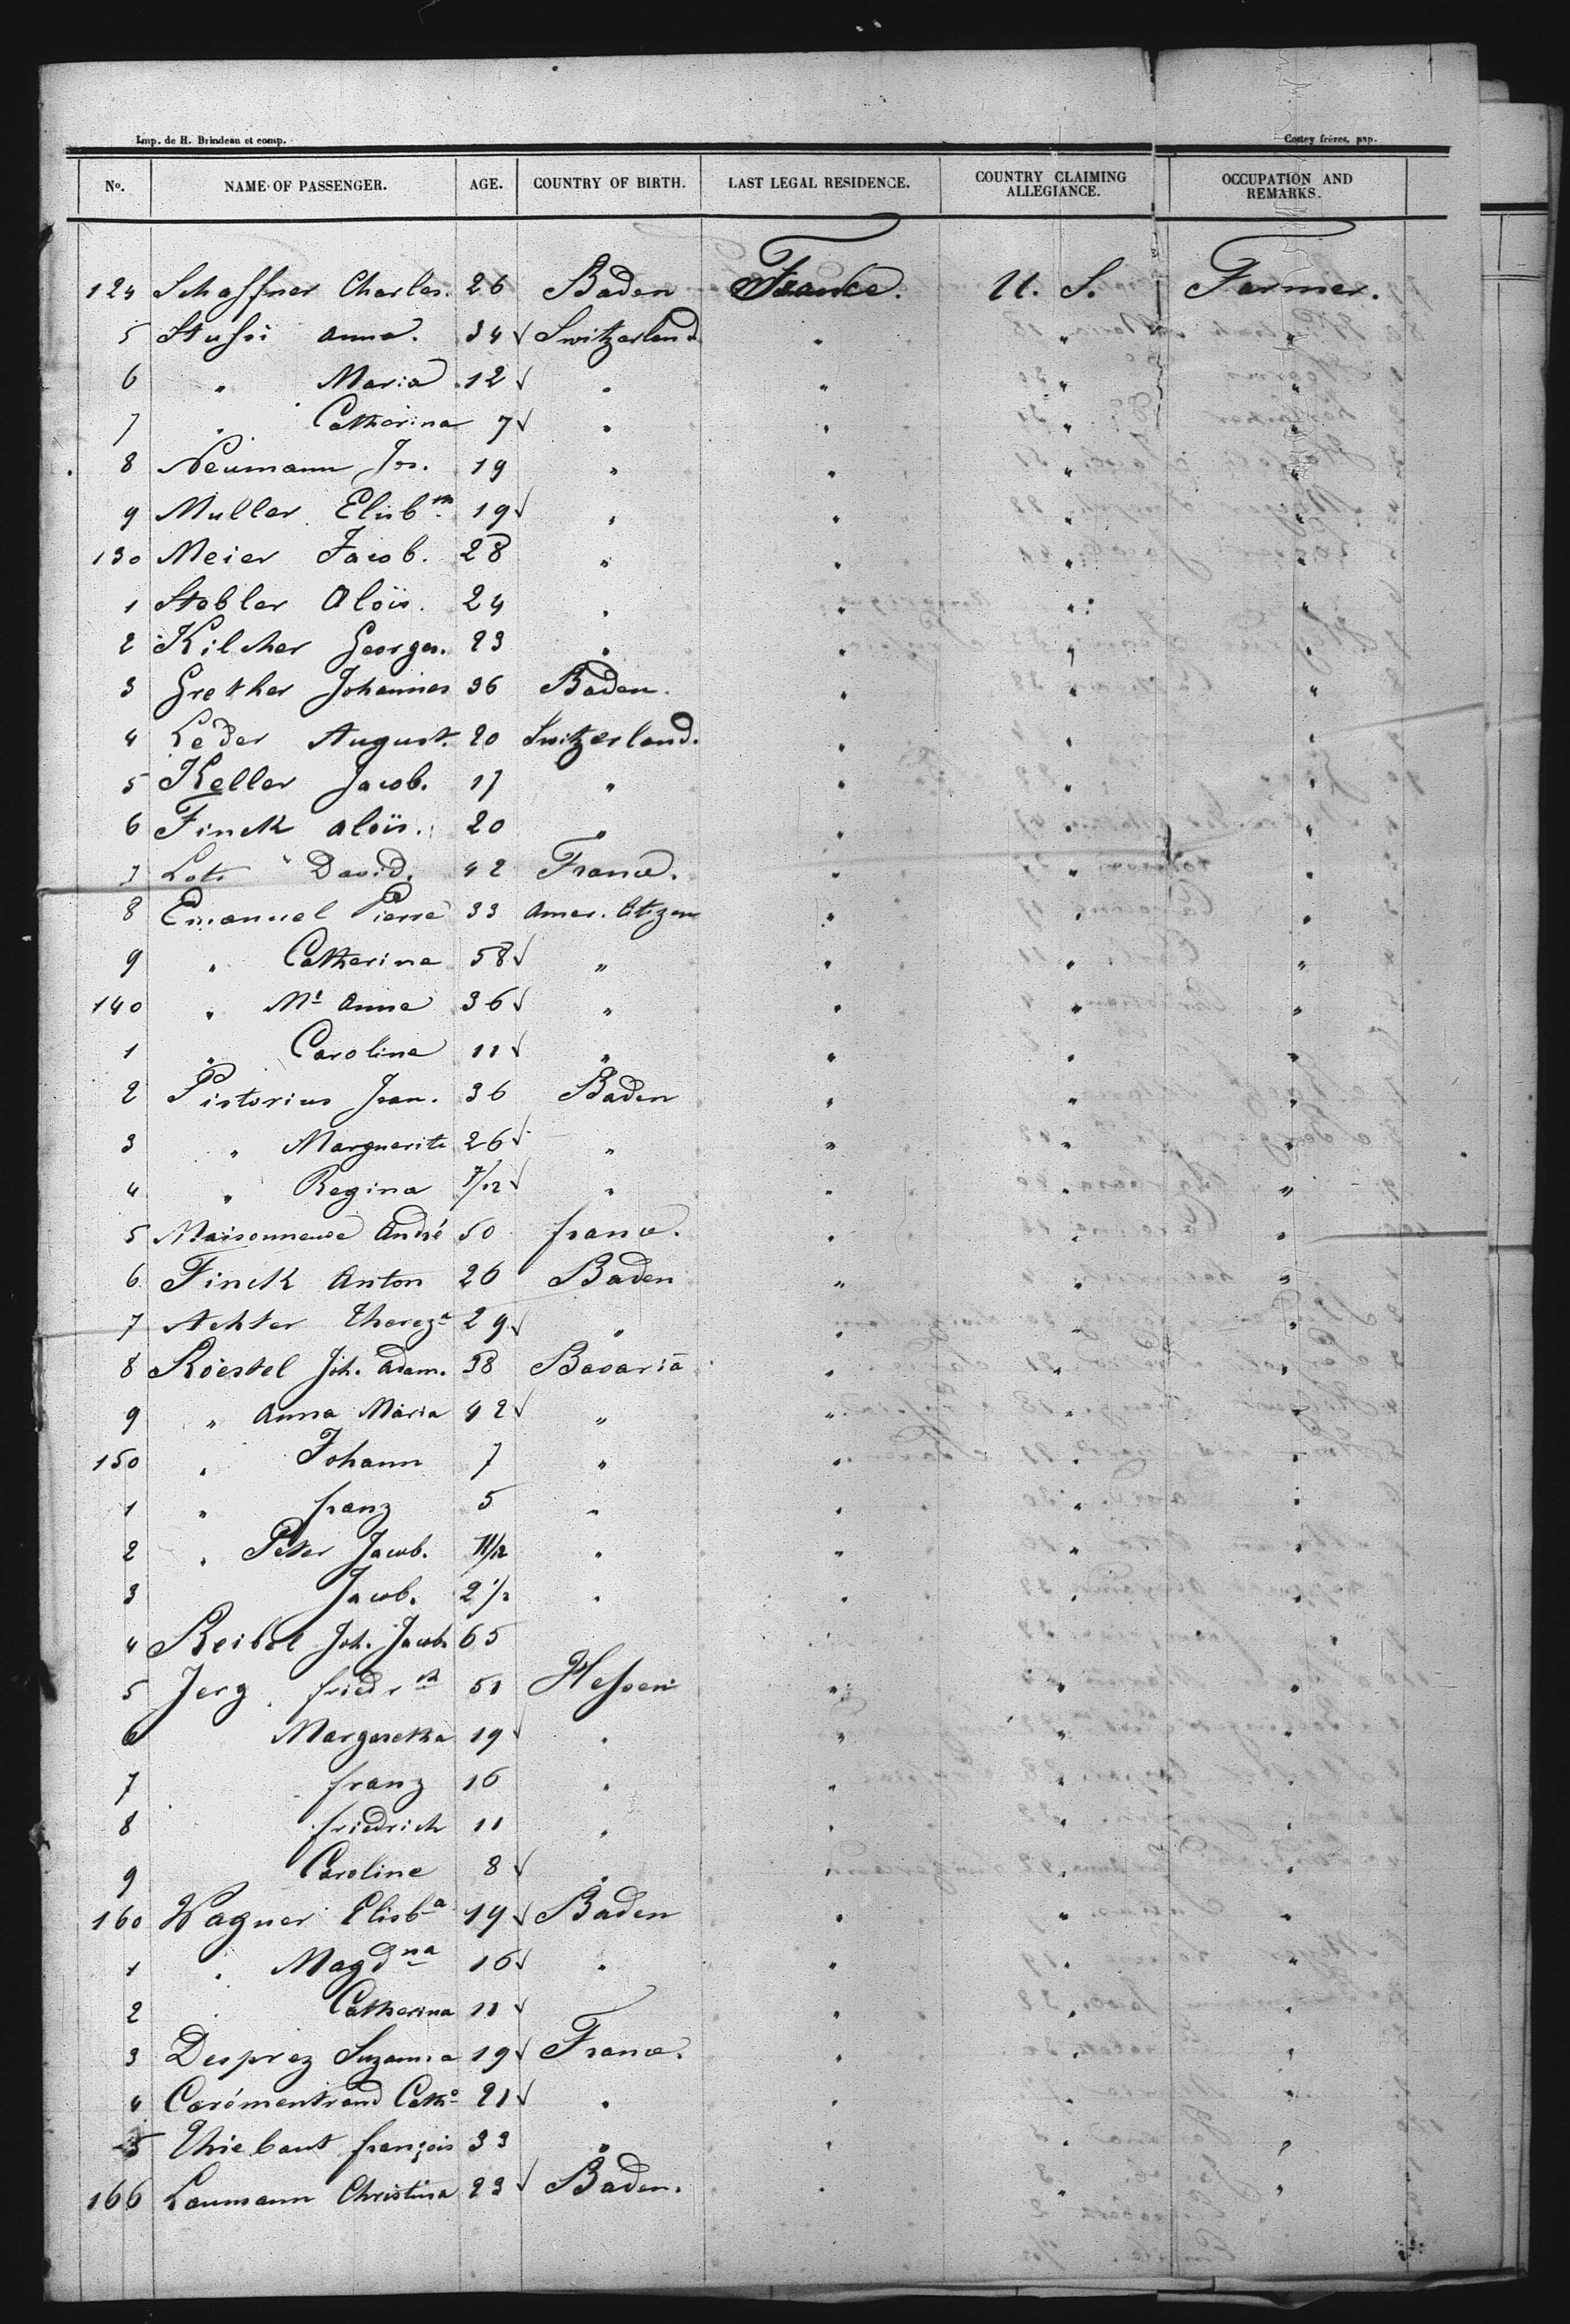 Imp. de H. Brindeau et comp. Costey frères, pap.
No. NAME OF PASSENGER. AGE. COUNTRY OF BIRTH. LAST LEGAL RESIDENCE. COUNTRY CLAIMING ALLEGIANCE. OCCUPATION AND REMARKS.
124 Schaffner Charles. 26 Baden France. U. S. Farmer.
5 Stussi Anna. 34 √ Switzerland " " "
6 " Maria 12 √ " " " "
7 " Catherina 7 √ " " " "
8 Neumann Jos. 19 " " " "
9 Muller Elisbth 19 √ " " " "
130 Meier Jacob. 28 " " " "
1 Stebler Aloïs. 24 " " " "
2 Kilcher Georges. 23 " " " "
3 Grether Johannes 36 Baden. " " "
4 Leder August. 20 Switzerland. " " "
5 Keller Jacob. 17 " " " "
6 Finck Aloïs. 20 " " " "
7 Lots David. 42 France. " " "
8 Emanuel Pierre 33 Amer. Citizen " " "
9 " Catherine 58 √ " " " "
140 " Mª Anna 36 √ " " " "
1 " Caroline 11 √ " " " "
2 Pistorius Jean. 36 Baden " " "
3 " Marguerite 26 √ " " " "
4 " Regina 7/12 √ " " " "
5 Maisonneuve André 50 france. " " "
6 Finck Anton 26 Baden " " "
7 Achter Therezª 29 √ " " " "
8 Roestel Joh. Adam. 38 Bavaria " " "
9 " Anna Maria 42 √ " " " "
150 " Johann 7 " " " "
1 " franz 5 " " " "
2 " Peter Jacob. 11/12 " " " "
3 Jacob. 2 1/2 " " " "
4 Reibel Joh. Jacob 65 " " "
5 Jerg friedrch 51 Hessen " " "
6 Margaretha 19 √ " " " "
7 franz 16 " " " "
8 friedrich 11 " " " "
9 Caroline 8 √ " " " "
160 Wagner Elisbª 19 √ Baden " " "
1 " Magdna 16 √ " " " "
2 " Catherina 11 √ " " "
3 Desprez Suzanna 19 √ France. " " "
4 Carémentrand Cathe 21 √ " " " "
5 Thiebaut françois 33 " " " "
166 Laumann Christina 23 √ Baden. " " "